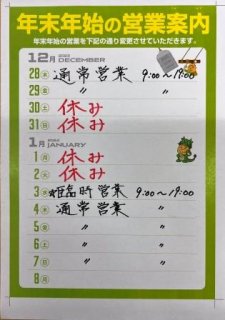 年末年始の営業案内
年末年始の営業を下記の通り変更させていただきます。
12月 2023 DECEMBER
28 木 通常営業 9:00～19:00
29 金 〃 〃
30 土 休み
31 日 休み
1月 2024 JANUARY
1 月 休み
2 火 休み
3 水 ※臨時営業 9:00～19:00
4 木 通常営業 〃
5 金 〃 〃
6 土 〃 〃
7 日 〃 〃
8 月